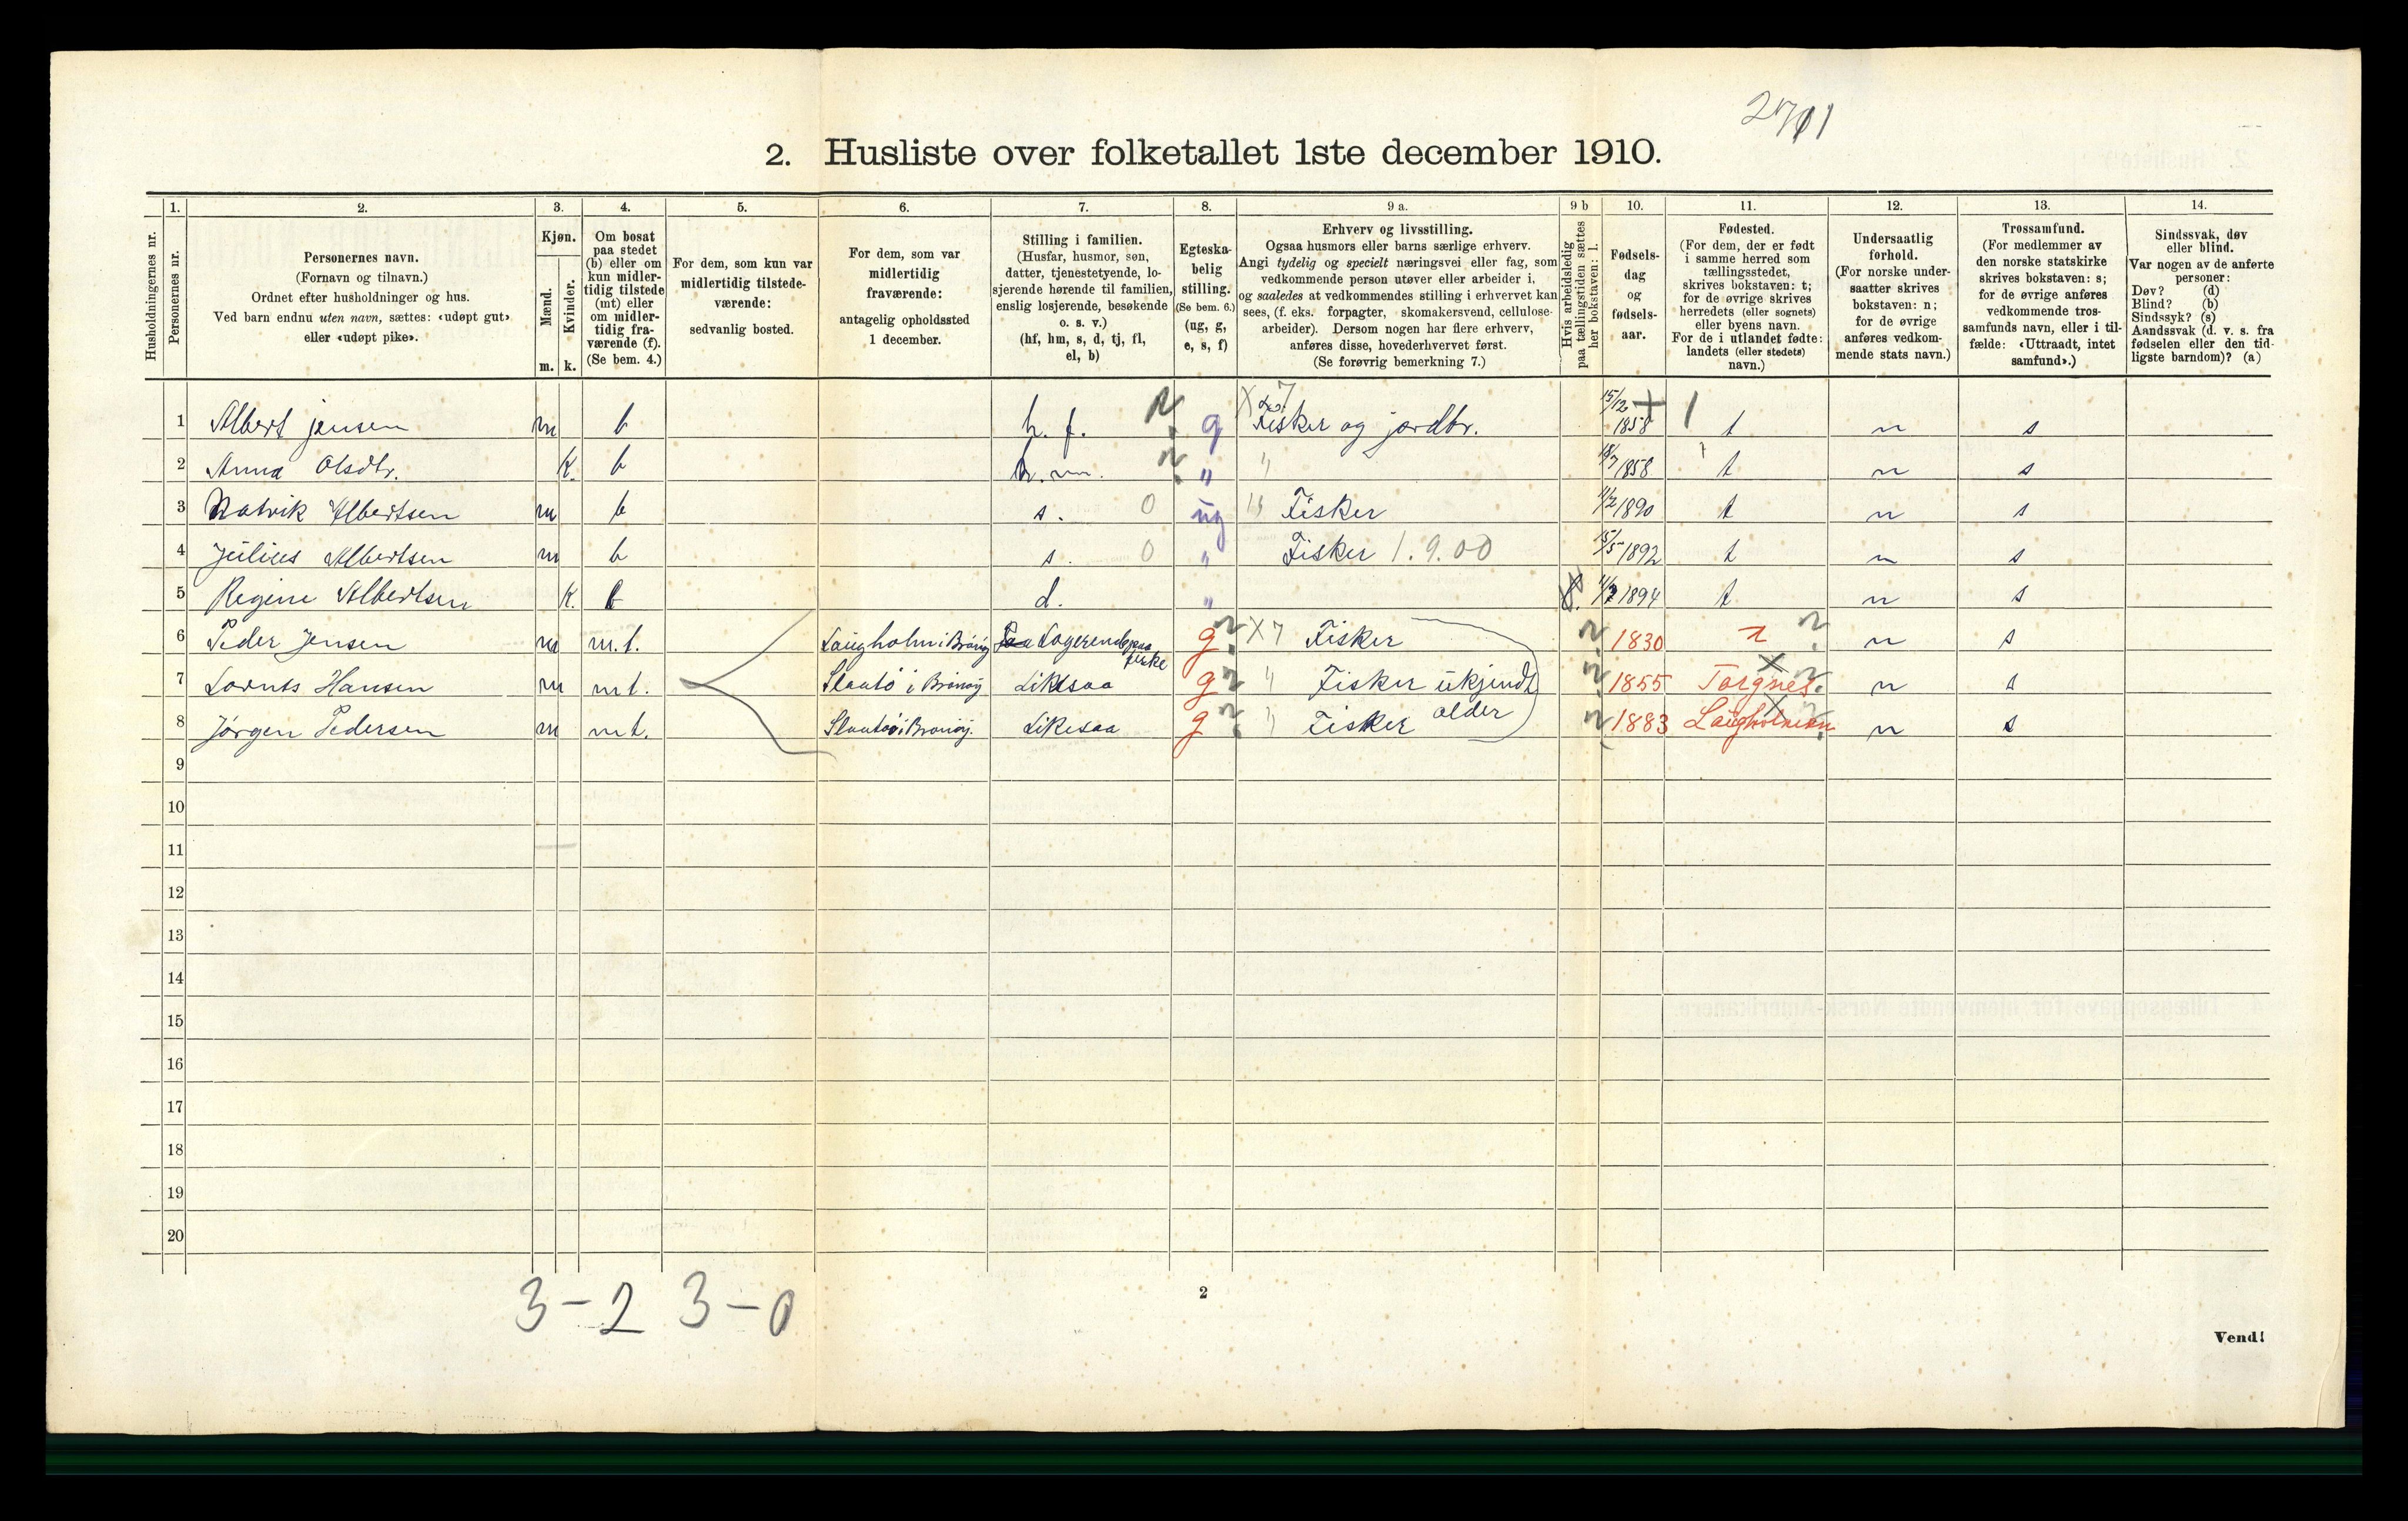 2701
2. Husliste over folketallet 1ste december 1910.
1. 2. 3. 4. 5. 6. 7. 8. 9 a. 9 b 10. 11. 12. 13. 14.
Husholdningernes nr.
Personernes nr.
Personernes navn.
(Fornavn og tilnavn.)
Ordnet efter husholdninger og hus.
Ved barn endnu uten navn, sættes: «udøpt gut»
eller «udøpt pike».
Kjøn.
Mænd.
Kvinder.
m. k.
Om bosat
paa stedet
(b) eller om
kun midler-
tidig tilstede
(mt) eller
om midler-
tidig fra-
værende (f).
(Se bem. 4.)
For dem, som kun var
midlertidig tilstede-
værende:
sedvanlig bosted.
For dem, som var
midlertidig
fraværende:
antagelig opholdssted
1 december.
Stilling i familien.
(Husfar, husmor, søn,
datter, tjenestetyende, lo-
sjerende hørende til familien,
enslig losjerende, besøkende
o. s. v.)
(hf, hm, s, d, tj, fl,
el, b)
Egteska-
belig
stilling.
(Se bem. 6.)
(ug, g,
e, s, f)
Erhverv og livsstilling.
Ogsaa husmors eller barns særlige erhverv.
Angi tydelig og specielt næringsvei eller fag, som
vedkommende person utøver eller arbeider i,
og saaledes at vedkommendes stilling i erhvervet kan
sees, (f. eks. forpagter, skomakersvend, cellulose-
arbeider). Dersom nogen har flere erhverv,
anføres disse, hovederhvervet først.
(Se forøvrig bemerkning 7.)
Hvis arbeidsledig
paa tællingstiden sættes
her bokstaven: l.
Fødsels-
dag
og
fødsels-
aar.
Fødested.
(For dem, der er født
i samme herred som
tællingsstedet,
skrives bokstaven: t;
for de øvrige skrives
herredets (eller sognets)
eller byens navn.
For de i utlandet fødte:
landets (eller stedets)
navn.)
Undersaatlig
forhold.
(For norske under-
saatter skrives
bokstaven: n;
for de øvrige
anføres vedkom-
mende stats navn.)
Trossamfund.
(For medlemmer av
den norske statskirke
skrives bokstaven: s;
for de øvrige anføres
vedkommende tros-
samfunds navn, eller i til-
fælde: «Uttraadt, intet
samfund».)
Sindssvak, døv
eller blind.
Var nogen av de anførte
personer:
Døv? (d)
Blind? (b)
Sindssyk? (s)
Aandssvak (d. v. s. fra
fødselen eller den tid-
ligste barndom)? (a)
1 Albert jensen m b h. f. g Fisker og jordbr. 15/12 1858 t n s
2 Anna Olsdtr. K. b h. m. " 18/7 1858 t n s
3 Natvik Albertsen m b s. 0 ug Fisker 11/2 1890 t n s
4 Julius Albertsen m b s. 0 " Fisker 1.9.00 15/5 1892 t n s
5 Regine Albertsen K. b d. " 1894 t n s
6 Peder Jensen m m.t. Laugholm i Brønøy Logerende paa fiske g X 7 Fisker 1830 t n s
7 Lornts Hansen m mt. i Brønøy Likesaa g " Fisker ukjendt 1855 Torgnes n s
8 Jørgen Pedersen m mt. i Brønøy. Likesaa g " Fisker alder 1883 n s
9
10
11
12
13
14
15
16
17
18
19
20
3-2 3-0
2
Vend!